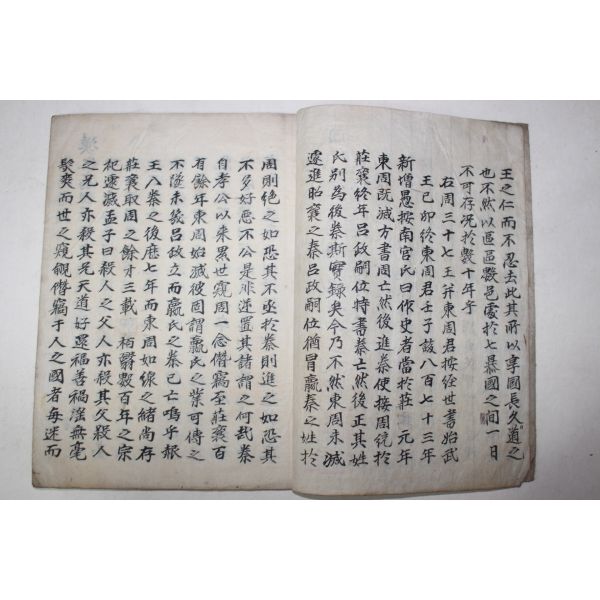 王之仁而不忍去此其所以享國長久道之
也不然以區區數邑處於七暴國之間一日
不可存况於數十年乎
右周三十七王幷東周君按經世書始武
王己卯終東周君壬子該八百七十三年
新增愚按南宮氏曰作史者當於莊 元年
東周旣滅方書周亡然後進秦使接周統於
莊襄終年呂政嗣位特書秦亡然後正其姓
氏別為後秦斯實錄矣今乃不然東周未滅
遽進昭襄之秦呂政嗣位猶冒嬴秦之姓於
周則絶之如恐其不亟於秦則進之如恐其
不多好惡不公是非逆置其諸謂之何哉秦
自孝公以来累世窺周一念僭竊至莊襄百
有餘年東周始滅彼固謂嬴氏之業可傳之
不
王入秦之後曆七年而東周如線之緖尚存
莊襄取周之餘才三載 柘翳數百年之宗
祀遽滅孟子曰殺人之父人亦殺其父殺人
之兄人亦殺其兄天道好還福善禍淫無毫
髮爽而世之窺覦僭竊于人之國者每迷而